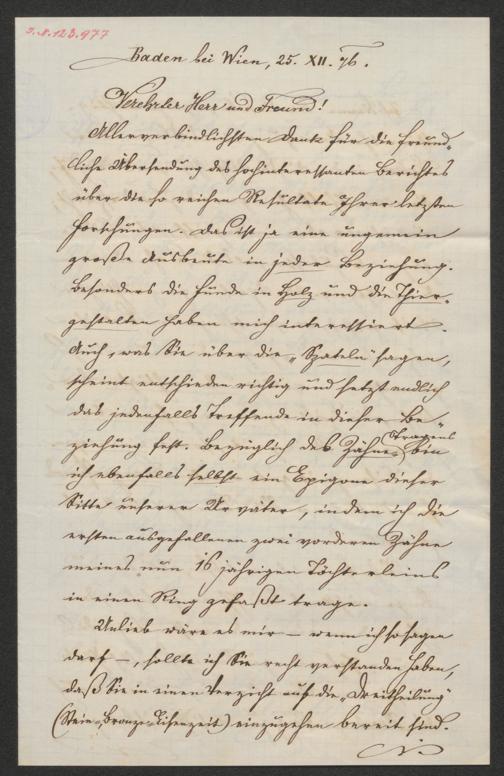 J.N. 123.977
Baden bei Wien, 25. XII. 76.
Verehrter Herr und Freund!
Allerverbindlichsten Dank für die freund-
liche Übersendung des hochinteressanten Berichtes
über die so reichen Resultate Ihrer letzten
Forschungen. Das ist ja eine ungemein
große Ausbeute in jeder Beziehung.
Besonders die Funde in Holz und die Thier-
gestalten haben mich interessiert.
Auch, was Sie über die „Spateln“ sagen,
scheint entschieden richtig und setzt endlich
das jedenfalls Treffende in dieser Be-
ziehung fest. Bezüglich des Zähne Tragens bin
ich ebenfalls selbst ein Epigone dieser
Sitte unserer Urväter, indem ich die
ersten ausgefallenen zwei vorderen Zähne
meines nun 16 jährigen Töchterleins
in einen Ring gefaßt trage.
Unlieb wäre es mir – wenn ich so sagen
darf –, sollte ich Sie recht verstanden haben,
daß Sie in einen Verzicht auf die „Dreitheilung“
(Stein-, Bronze-, Eisenzeit) einzugehen bereit sind.